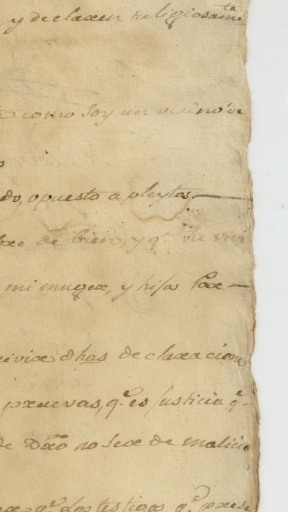 y declaxen religiosamte
como soy un vecino de
do, opuesto a pleytos
bre de bien, y q.e he vivi
mi muger, y hijos Par
recivix dhas declaxacion
pruevas, q.e es justicia q.
de Dro no sexe de malicia
q.e los testigos q.e prese